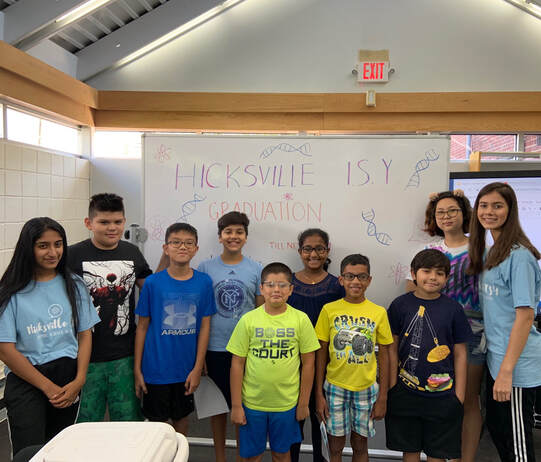 EXIT
HICKSVILLE I.S.Y
GRADUATION
TILL
Hicksville
UNDER ARMOUR
BOSS
THE COURT
CRUSH
'EM ALL